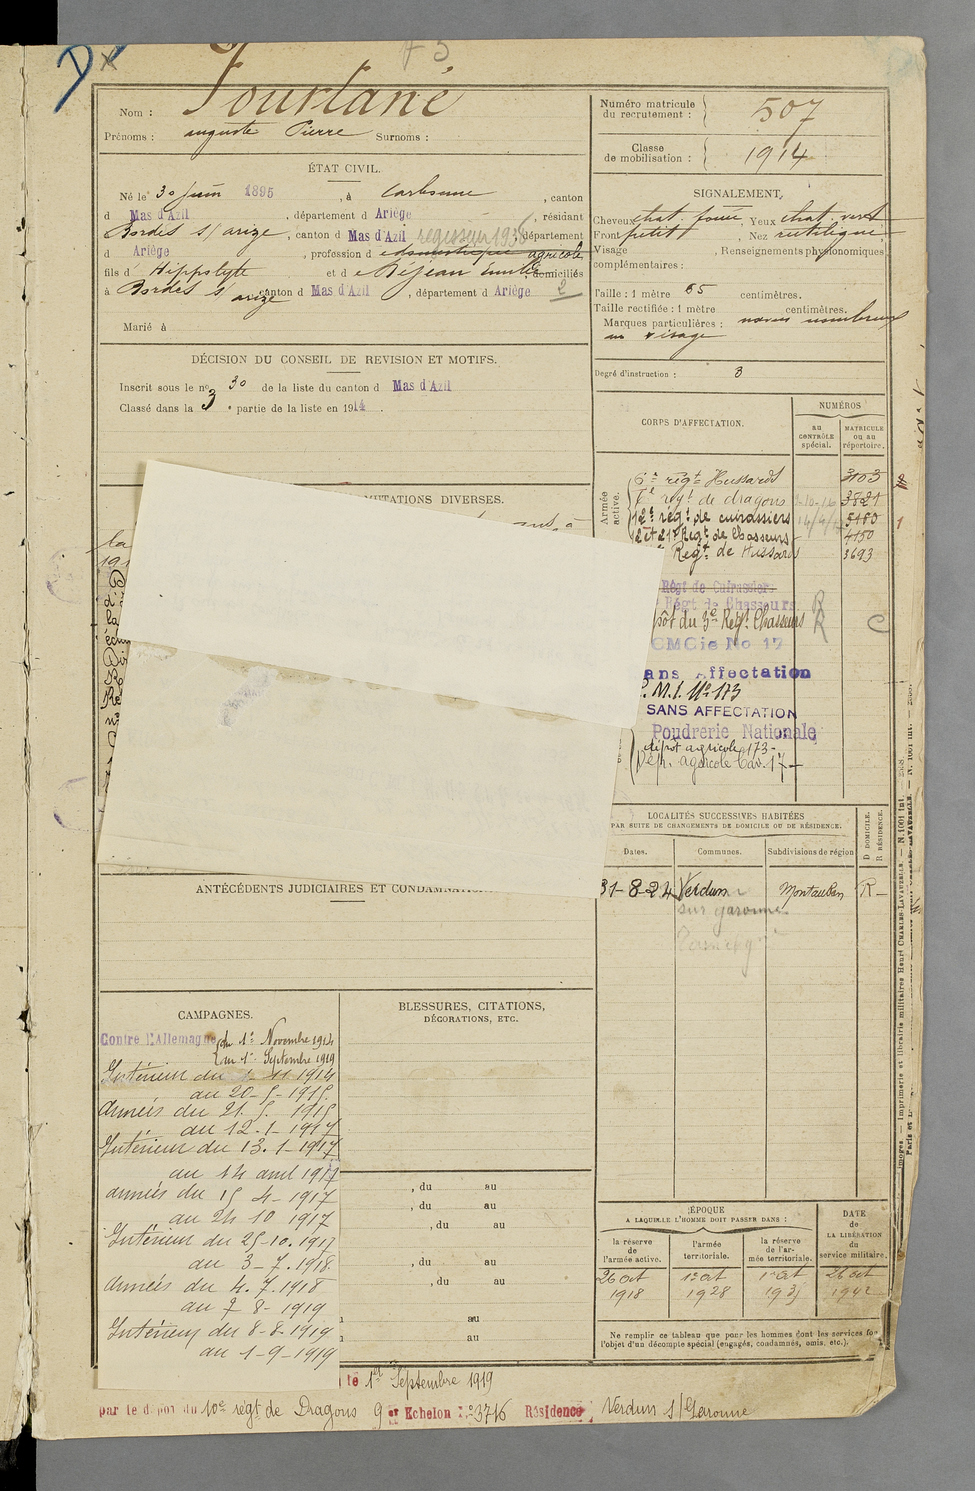 D
Nom : Fourtané
Prénoms : Auguste Pierre Surnoms :
ÉTAT CIVIL.
Né le 30 Juin 1895, à Carbonne, canton
d Mas d'Azil, département d Ariège, résidant
Bordes s/ arize, canton d Mas d'Azil regisseur 1936, département
d Ariège, profession d domestique agricole
fils d' Hippolyte et d e Rejean Emilie, domiciliés
à Bordes s/ arize canton d Mas d'Azil, département d Ariège 2
Marié à
DÉCISION DU CONSEIL DE REVISION ET MOTIFS.
Inscrit sous le no 30 de la liste du canton d Mas d'Azil
Classé dans la 3e partie de la liste en 1914.
MUTATIONS DIVERSES.
ANTÉCÉDENTS JUDICIAIRES ET CONDAMNATIONS
CAMPAGNES.
Contre l'Allemagne du 1er Novembre 1914
au 1er Septembre 1919
Intérieur du 1-11-1914
au 20-5-1915.
Armées du 21.5.1915
au 12.1-1917
Intérieur du 13.1-1917
au 14 avril 1917
Armées du 15 4-1917
au 24 10 1917
Intérieur du 25.10.1917
au 3-7.1918
Armées du 4.7.1918
au 7 8-1919
Intérieur du 8-8-1919
au 1-9-1919
BLESSURES, CITATIONS,
DÉCORATIONS, ETC.
, du au
, du au
, du au
, du au
, du au
au
au
lé 1er Septembre 1919
par le dépôt du 10e regt de Dragons 9 er Echelon No 3716 Résidence Verdun s/Garonne
Numéro matricule
du recrutement : 507
Classe
de mobilisation : 1914
SIGNALEMENT.
Cheveux chat. foncé, Yeux chat. verd
Front petit, Nez rectiligne
Visage , Renseignements physionomiques
complémentaires :
Taille : 1 mètre 65 centimètres.
Taille rectifiée : 1 mètre centimètres.
Marques particulières : naevus nombreux
au visage
Degré d'instruction : 3
CORPS D'AFFECTATION.
NUMÉROS
au CONTRÔLE spécial.
MATRICULE ou au répertoire.
Armée active.
6e régt Hussards 3103
régt de dragons 3821
12e régt de cuirassiers 5180
2 et 21e Regt de Chasseurs 4150
Regt de Hussards 3693
Régt de Cuirassiers
Régt de Chasseurs
pôt du 3e Regt Chasseurs R
CMCie No 17 C
ans Affectation
P. M. I. No 173
SANS AFFECTATION
Poudrerie Nationale
dépôt agricole 173-
Dép. agricole Cav. 17-
LOCALITÉS SUCCESSIVES HABITÉES
PAR SUITE DE CHANGEMENTS DE DOMICILE OU DE RÉSIDENCE.
Dates.
Communes.
Subdivisions de région
D DOMICILE.
R RÉSIDENCE.
31-8-24 Verdun Montauban R-
sur garonne
ÉPOQUE
A LAQUELLE L'HOMME DOIT PASSER DANS :
DATE
de
LA LIBÉRATION
du
service militaire.
la réserve
de
l'armée active.
l'armée
territoriale.
la réserve
de l'ar-
mée territoriale.
26 oct 1918
1er oct 1928
26 oct
Ne remplir ce tableau que pour les hommes dont les services font
l'objet d'un décompte spécial (engagés, condamnés, omis, etc.).
Imprimerie et librairie militaires Henri CHARLES-LAVAUZELLE.